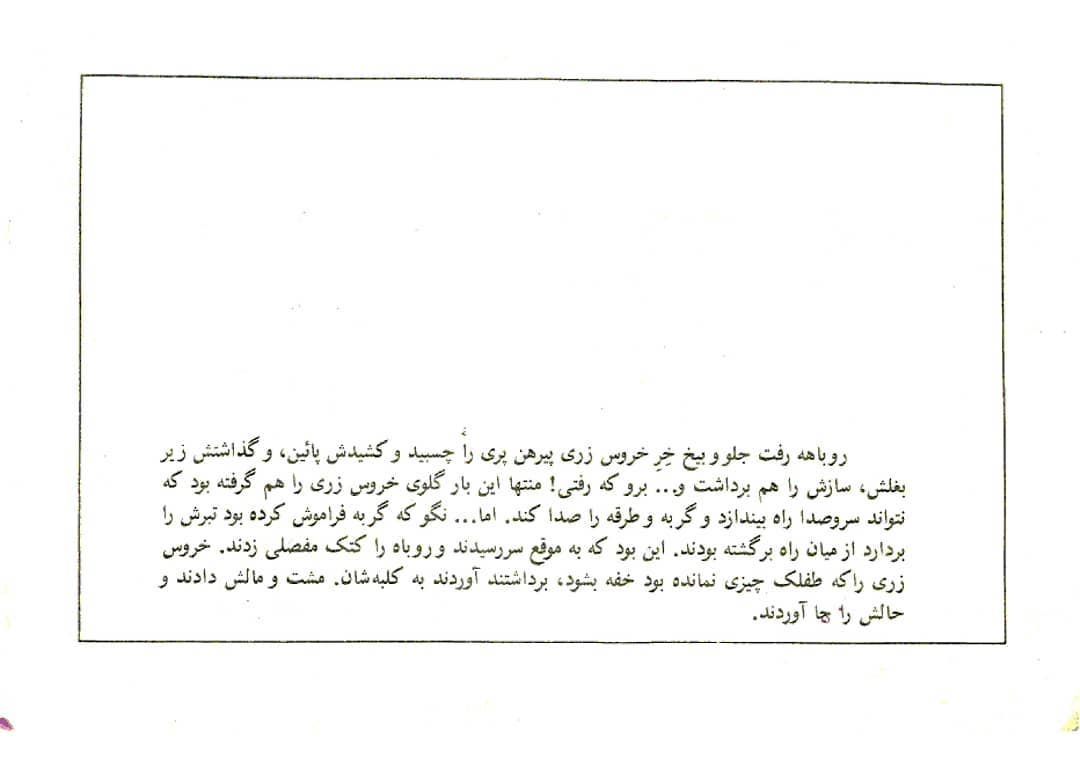 روباهه رفت جلو و بیخ خِرِ خروس زری پیرهن پری را چسبید و کشیدش پائین، و گذاشتش زیر
بغلش، سازش را هم برداشت و... برو که رفتی! منتها این بار گلوی خروس زری را هم گرفته بود که
نتواند سروصدا راه بیندازد و گربه و طرقه را صدا کند. اما... نگو که گربه فراموش کرده بود تبرش را
بردارد از میان راه برگشته بودند. این بود که به موقع سررسیدند و روباه را کتک مفصلی زدند. خروس
زری را که طفلک چیزی نمانده بود خفه بشود، برداشتند آوردند به کلبه‌شان. مشت و مالش دادند و
حالش را جا آوردند.